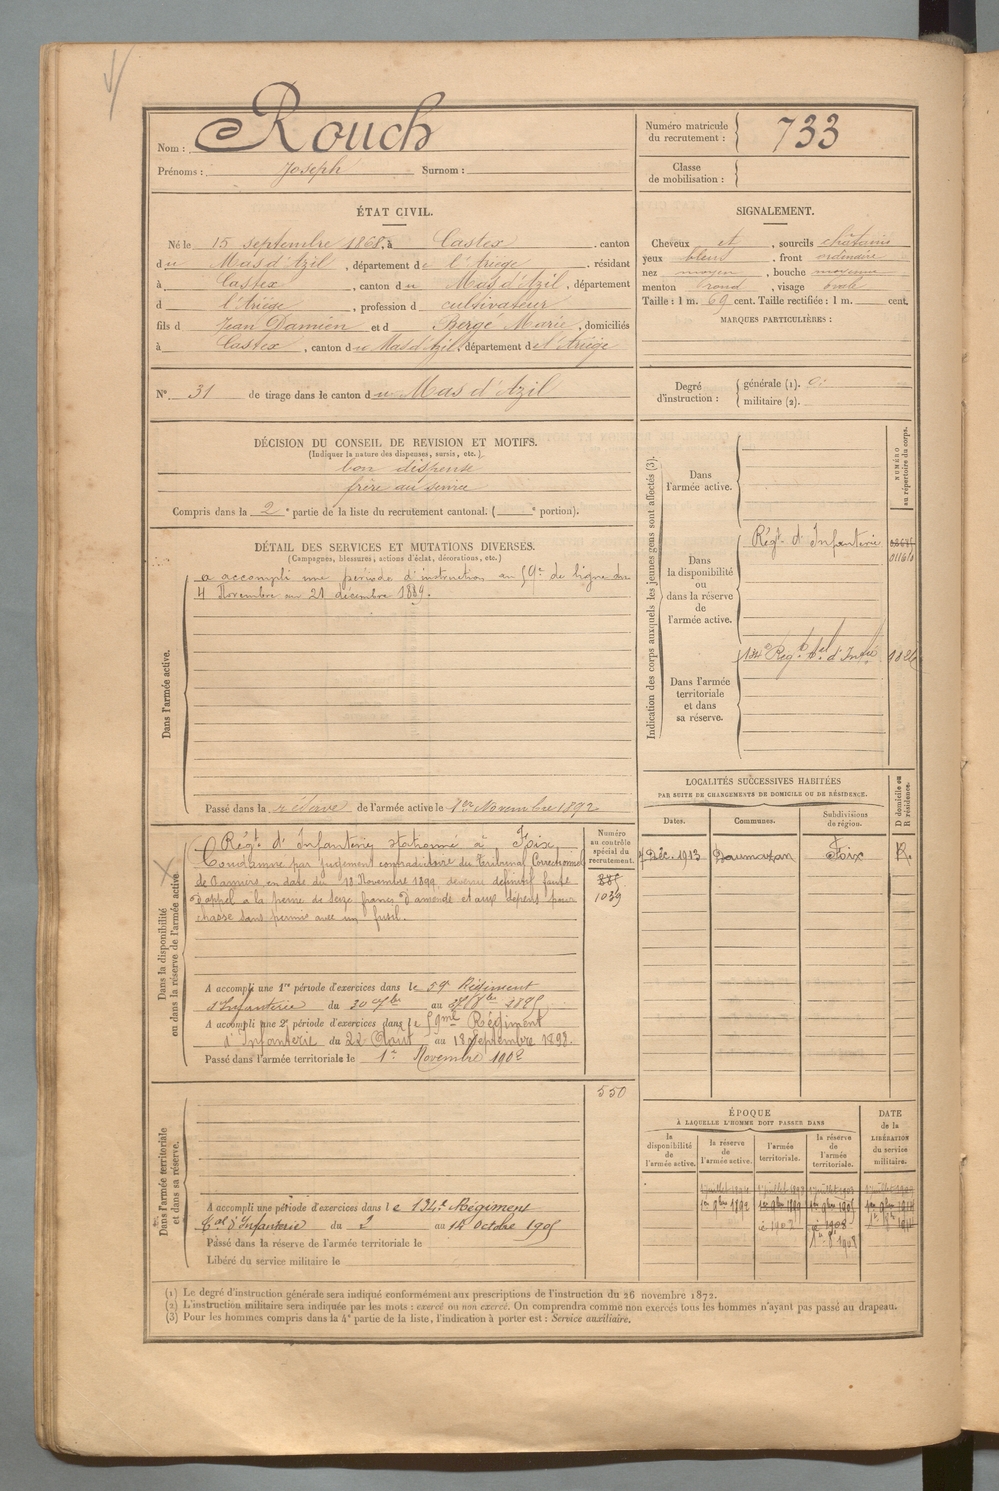 Nom : Rouch
Prénoms : Joseph Surnom :
Numéro matricule du recrutement : 733
Classe de mobilisation :
ÉTAT CIVIL.
Né le 15 septembre 1868, à Castex, canton
du Mas d'Azil, département de l'Ariège, résidant
à Castex, canton du Mas d'Azil, département
d l'Ariège, profession d cultivateur
fils d Jean Damien et d Bergé Marie, domiciliés
à Castex, canton du Mas d'Azil, département de l'Ariège
N° 31 de tirage dans le canton du Mas d'Azil
SIGNALEMENT.
Cheveux et, sourcils châtains
yeux bleus, front ordinaire
nez moyen, bouche moyenne
menton rond, visage ovale
Taille : 1 m. 69 cent. Taille rectifiée : 1 m. cent.
MARQUES PARTICULIÈRES :
Degré d'instruction :
générale (1).
militaire (2).
DÉCISION DU CONSEIL DE REVISION ET MOTIFS.
(Indiquer la nature des dispenses, sursis, etc.)
bon dispensé
frère au service
Compris dans la 2e partie de la liste du recrutement cantonal. ( e portion).
DÉTAIL DES SERVICES ET MUTATIONS DIVERSES.
(Campagnes, blessures, actions d'éclat, décorations, etc.)
Dans l'armée active.
a accompli une période d'instruction au 59e de ligne du
4 Novembre au 21 décembre 1889.
Passé dans la réserve de l'armée active le 1er Novembre 1892
Indication des corps auxquels les jeunes gens sont affectés (3).
NUMÉRO au répertoire du corps.
Dans l'armée active.
Dans la disponibilité ou dans la réserve de l'armée active.
Régt d'Infanterie
Dans l'armée territoriale et dans sa réserve.
134e Régt tal d'Infie
LOCALITÉS SUCCESSIVES HABITÉES
PAR SUITE DE CHANGEMENTS DE DOMICILE OU DE RÉSIDENCE.
Dates. Communes. Subdivisions de région. D domicile ou R résidence.
7 Déc. 1913 Daumazan Foix R.
Dans la disponibilité ou dans la réserve de l'armée active.
Numéro au contrôle spécial du recrutement.
Régt d'Infanterie stationné à Foix
Condamné par jugement contradictoire du Tribunal Correctionnel
de Pamiers en date du 18 Novembre 1899 devenu définitif faute
d'appel à la peine de Seize francs d'amende et aux dépens pour
chasse sans permis avec un fusil.
1039
A accompli une 1re période d'exercices dans le 59e Régiment
d'Infanterie du 30 au 1895
A accompli une 2e période d'exercices dans le 59me Régiment
d'Infanterie du 22 Août au 18 Septembre 1898.
Passé dans l'armée territoriale le 1er Novembre 1902
Dans l'armée territoriale et dans sa réserve.
550
A accompli une période d'exercices dans le 134e Régiment
tal d'Infanterie du 2 au 14 octobre 1905
Passé dans la réserve de l'armée territoriale le
Libéré du service militaire le
ÉPOQUE
À LAQUELLE L'HOMME DOIT PASSER DANS
la disponibilité de l'armée active.
la réserve de l'armée active.
l'armée territoriale.
la réserve de l'armée territoriale.
DATE de la LIBÉRATION du service militaire.
1er 9bre 1892
(1) Le degré d'instruction générale sera indiqué conformément aux prescriptions de l'instruction du 26 novembre 1872.
(2) L'instruction militaire sera indiquée par les mots : exercé ou non exercé. On comprendra comme non exercés tous les hommes n'ayant pas passé au drapeau.
(3) Pour les hommes compris dans la 4e partie de la liste, l'indication à porter est : Service auxiliaire.